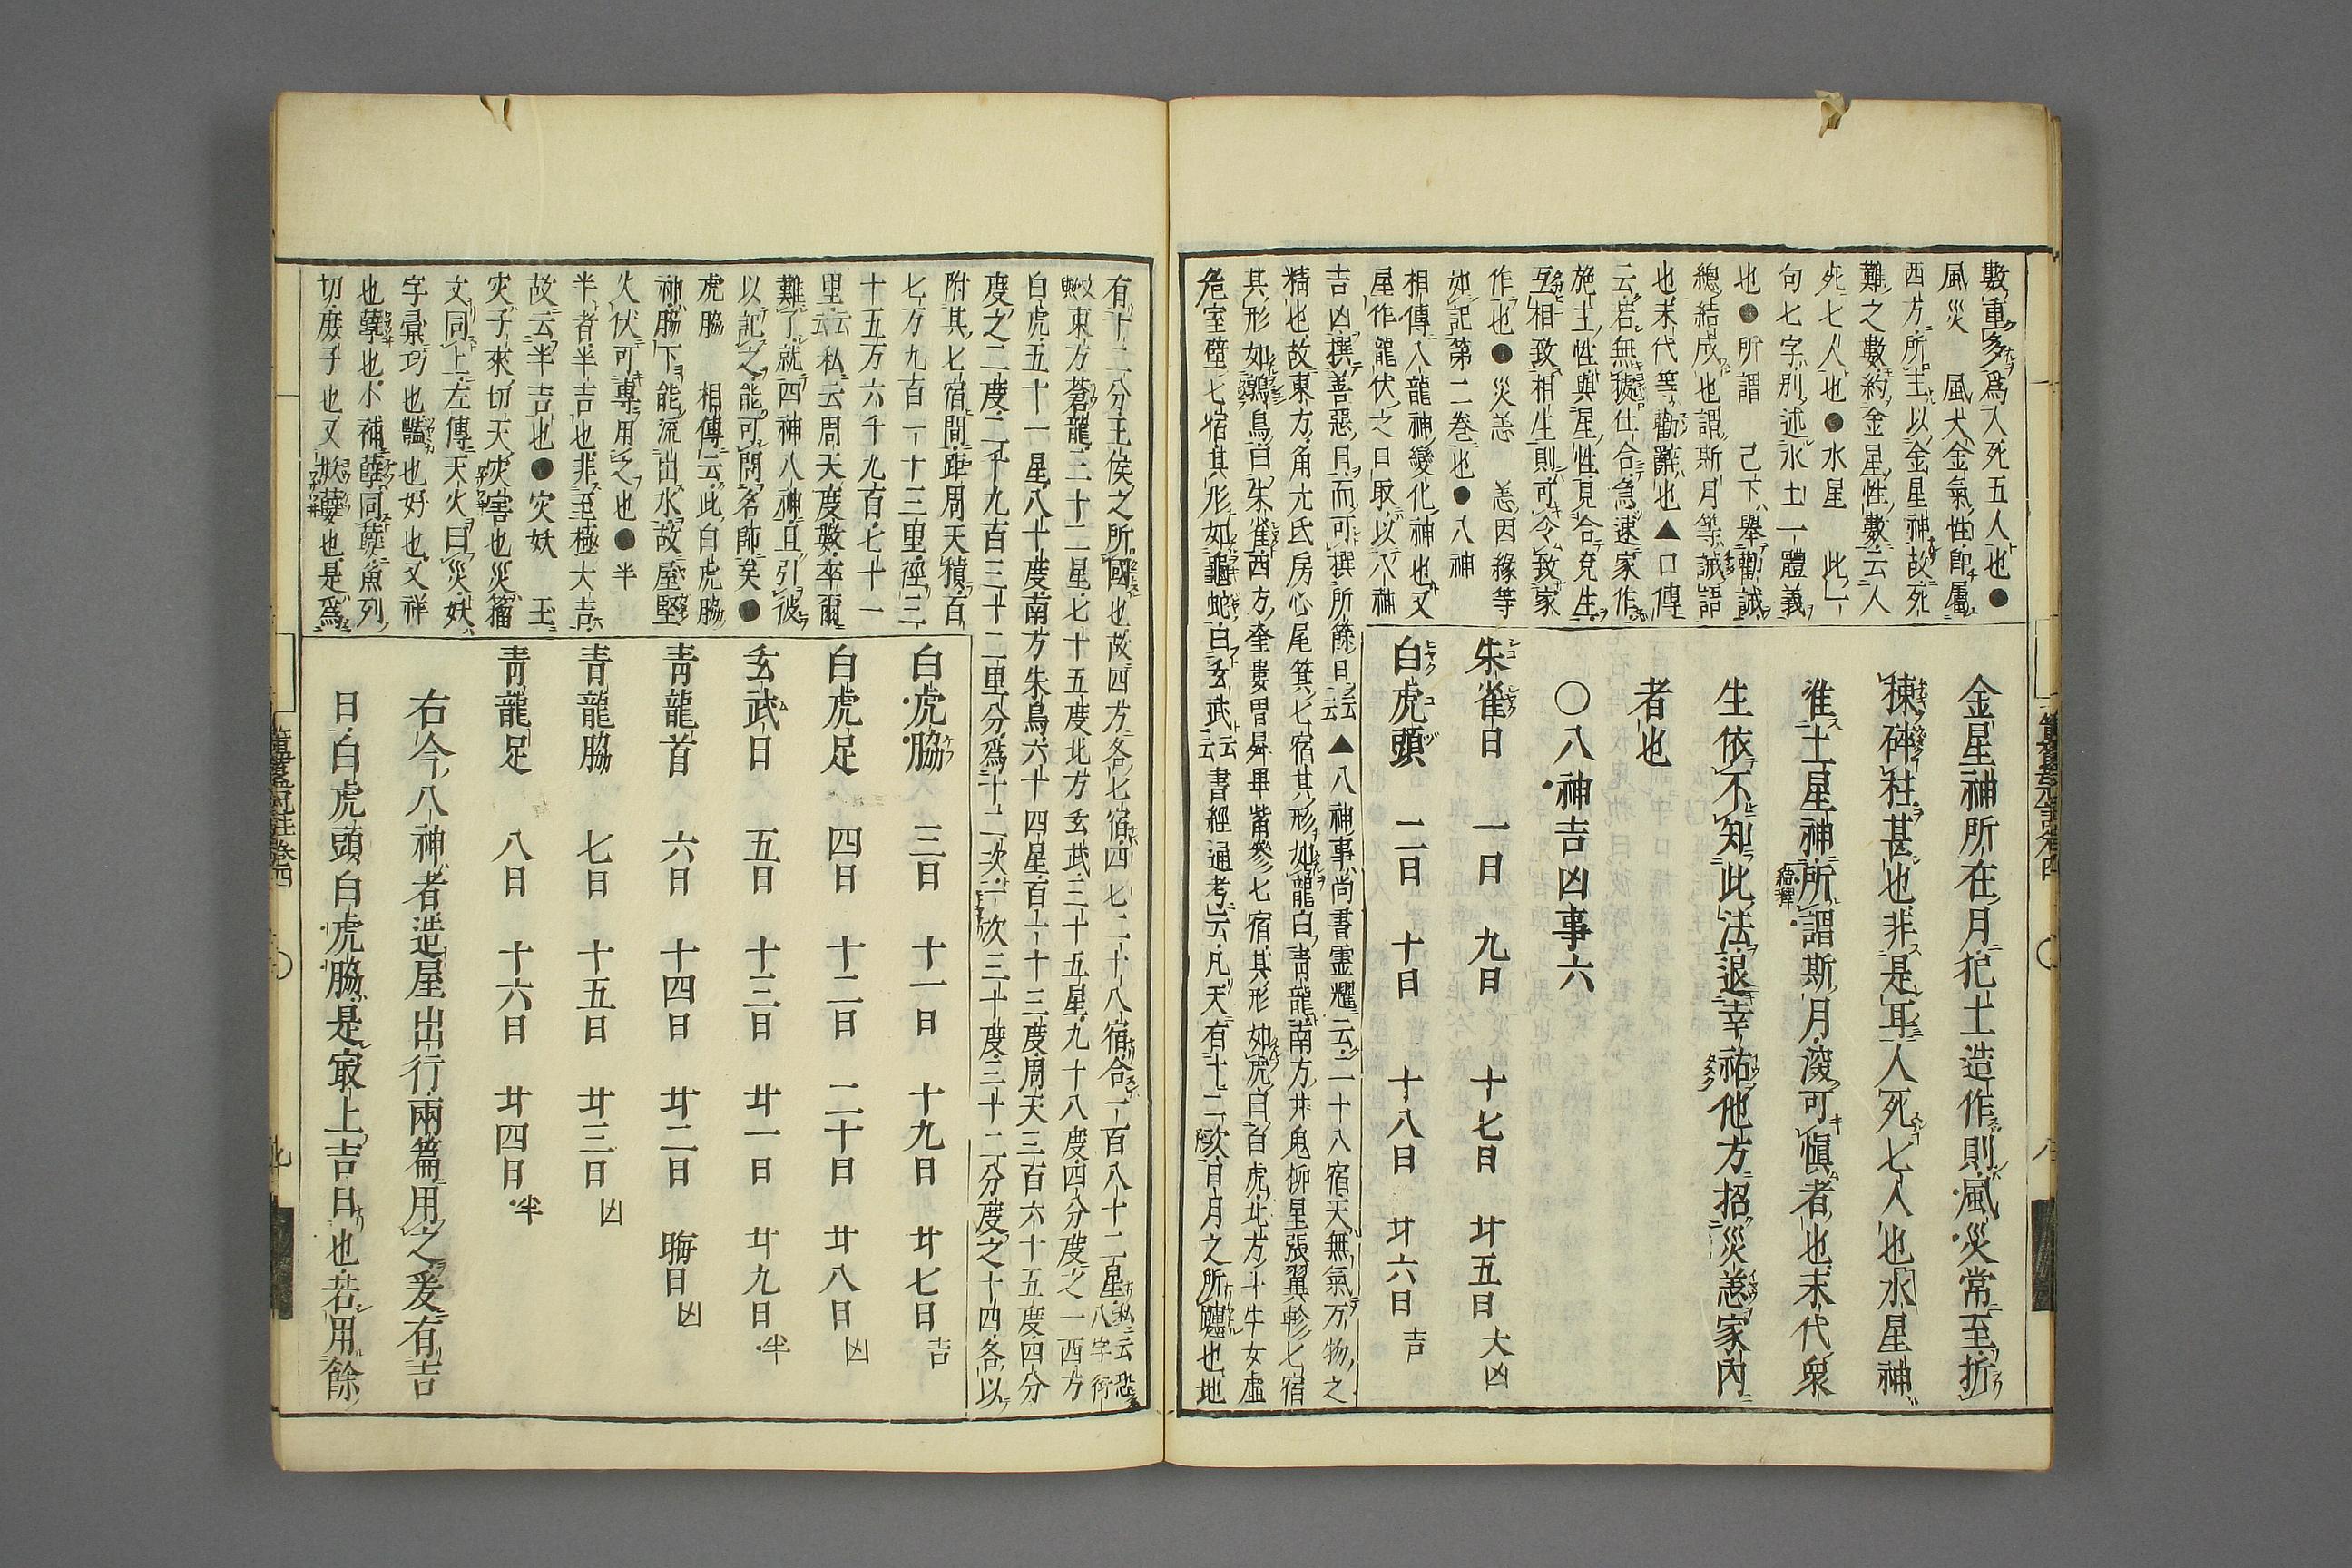 數重多爲人死五人也●
風災　風大金氣性卽屬
西方所主以金星神故死
難之數約金星性數云人
死七人也●水星　此一
句七字別述水土一體義
也●所謂　己下擧勸誡
總結成也謂斯月等誡語
也末代等勸辭也▲口傳
云若無據仕合急速家作
施主性與星性見合兌生
互相致相生則可令致家
作也●災恙　恙因緣等
如記第二卷也●八神
相傳八龍神變化神也又
屋作龍伏之日取以八神
吉凶撰善惡月而可撰所餘日云云▲八神事尚書靈耀云二十八宿天無氣万物之
精也故東方角亢氐房心尾箕七宿其形如龍曰靑龍南方井鬼柳星張翼軫七宿
其形如鶉鳥曰朱雀西方奎婁胃昴畢觜參七宿其形如虎曰白虎北方斗牛女虛
危室壁七宿其形如龜蛇曰玄武云云書經通考云凡天有十二次日月之所躔也地
金星神所在月犯土造作則風災常至折
棟碎柱甚也非是耳人死七人也水星神
准土星神所謂斯月深可愼者也末代衆
生依不知此法退幸祐他方招災恙家內
者也
○八神吉凶事六
朱雀日　一日　九日　十七日　廿五日　大凶
白虎頭　二日　十日　十八日　廿六日　吉
有十二分王侯之所國也故四方各七宿四七二十八宿合一百八十二星私云恐八字衍
東方蒼龍三十二星七十五度北方玄武三十五星九十八度四分度之一西方
白虎五十一星八十度南方朱鳥六十四星百一十三度周天三百六十五度四分
度之二度二千九百三十二里分爲十二次一次三十度三十二分度之十四各以
附其七宿間距周天積百
七万九百一十三里徑三
十五万六千九百七十一
里云云私云周天度數率爾
難了就四神八神且引彼
以記之能可問名師矣●
虎脇　相傳云此白虎脇
神脇下能流出水故屋堅
火伏可專用之也●半
半者半吉也非至極大吉
故云半吉也●灾妖　玉
灾子來切天灾害也災籀
文同上左傳天火曰災妖
字彙巧也豔也好也又祥
也孽也小補孽同孼魚列
切庶子也又妖孽也是爲
白虎脇　三日　十一日　十九日　廿七日　吉
白虎足　四日　十二日　二十日　廿八日　凶
玄武日　五日　十三日　廿一日　廿九日　半
靑龍首　六日　十四日　廿二日　晦日　凶
靑龍脇　七日　十五日　廿三日　凶
靑龍足　八日　十六日　廿四日　半
右今八神者造屋出行兩篇用之爰有吉
日白虎頭白虎脇是冣上吉日也若用餘